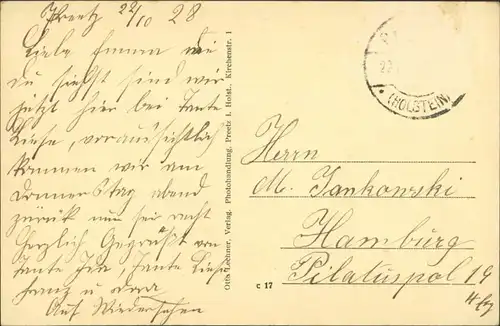 Preetz 22/10 28
Liebe Emma wie
du siehst sind wir
jetzt hier bei Tante
Liese, voraussichtlich
kommen wir am
Donnerstag abend
zurück nun sei recht
herzlich Gegrüßt von
Tante Ida, Tante Liese
Franz u
Auf Wiedersehen
Otto Lechner, Verlag. Photohandlung. Preetz i. Holst., Kirchenstr. 1
c 17
(HOLSTEIN)
Herrn
M. Jankowski
Hamburg
Pilatuspol 19